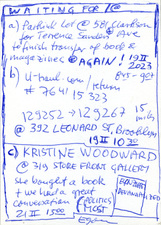 WAITING FOR 1@
a) Parking Lot @ 581 Clarkson
for Terence Sanders @ Ave
to finish transfer of book &
magazines @ AGAIN! 19 II 2023
b) U-haul.com return 845-907
# 76415323
129252 → 129267 15 miles
@ 392 LEONARD ST, Brooklyn
19 II 10 30
c) KRISTINE WOODWARD
@ 719 STORE FRONT GALLERY
she bought a book
& we had a great
conversation (POLITICS MOST
21 II 1500